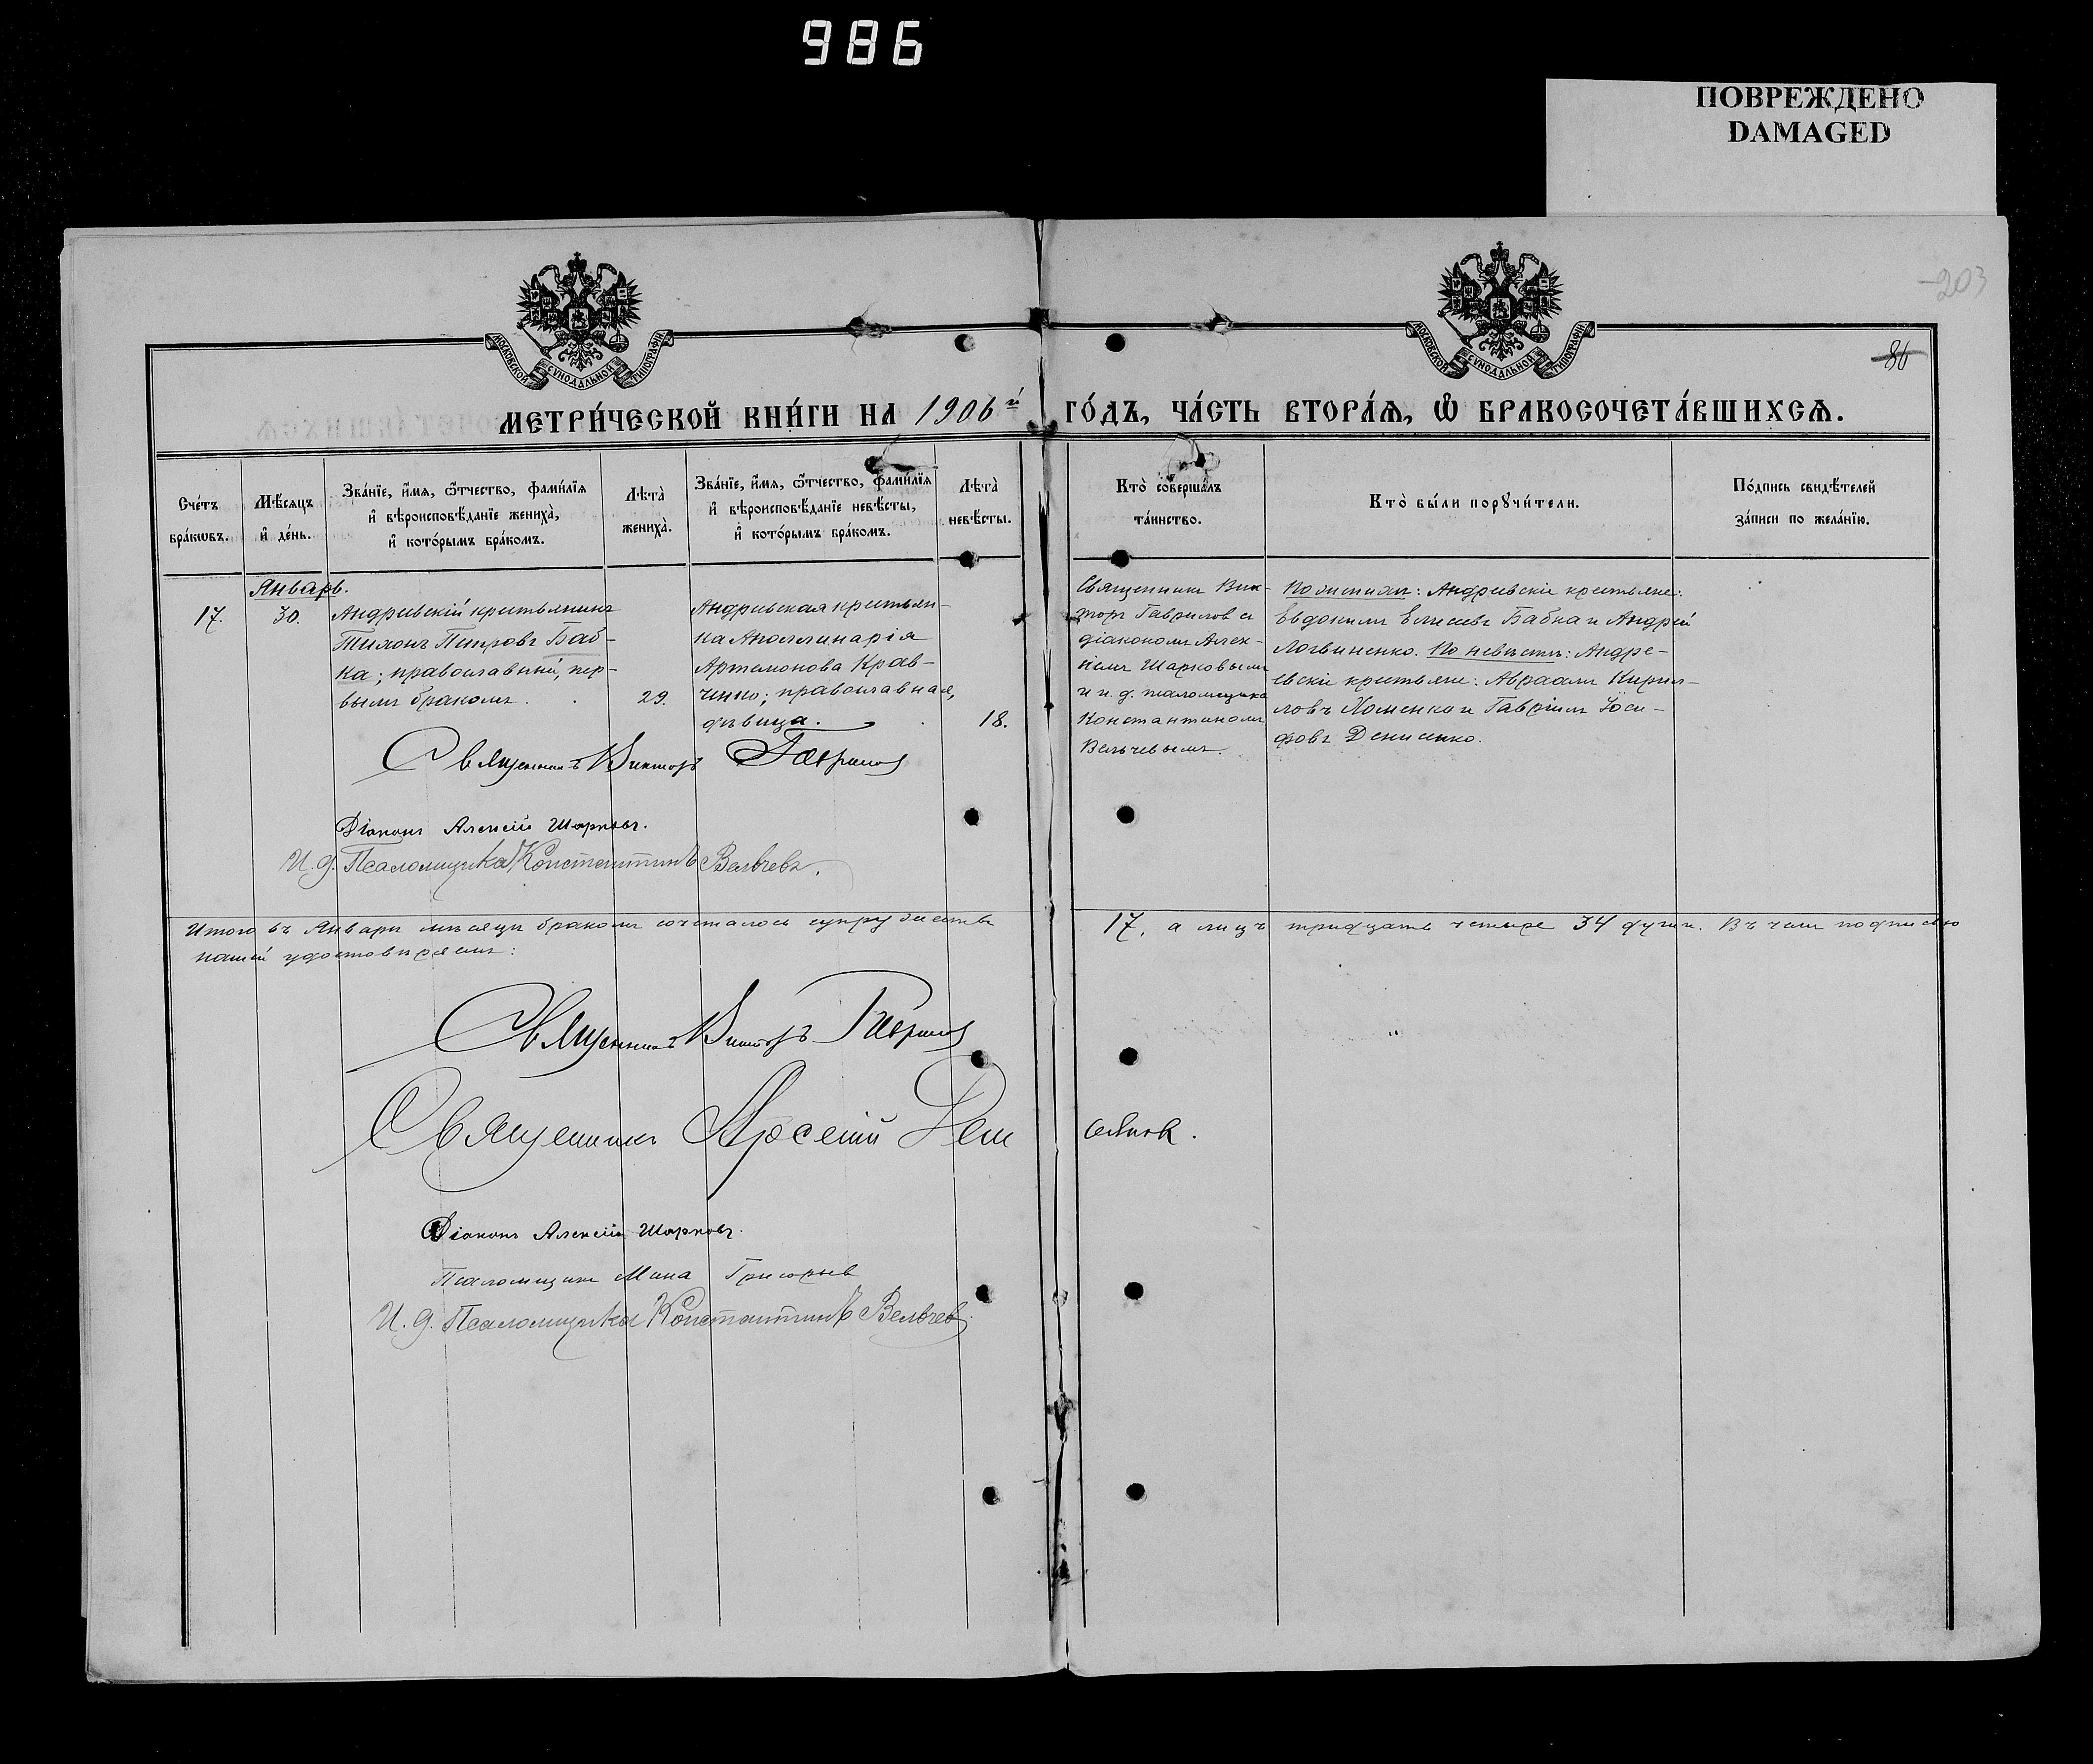 986
ПОВРЕЖДЕНО
DAMAGED
203
86
МОСКОВСКОЙ СѴНОДАЛЬНОЙ ТИПОГРАФІИ
МОСКОВСКОЙ СѴНОДАЛЬНОЙ ТИПОГРАФІИ
МЕТРИ́ЧЕСКОЙ КНИ́ГИ НА 1906й ГО́ДЪ, ЧА́СТЬ ВТОРА́Ѧ, Ѡ҆ БРАКОСОЧЕТА́ВШИХСѦ.
Сче́тъ
бра́кѡвъ.
Мѣ́сѧцъ
и҆ де́нь.
Зва́нїе, и҆́мѧ, ѻ҆́тчество, фами́лїѧ
и҆ вѣроисповѣ́данїе жениха̀,
и҆ кото́рымъ бра́комъ.
Лѣта̀
жениха̀.
Зва́нїе, и҆́мѧ, ѻ҆́тчество, фами́лїѧ
и҆ вѣроисповѣ́данїе невѣ́сты,
и҆ кото́рымъ бра́комъ.
Лѣта̀
невѣ́сты.
Кто̀ соверша́лъ
та́инство.
Кто̀ бы́ли порꙋчи́тели.
По́дпись свидѣ́телей
за́писи по жела́нїю.
Январь.
17.
30.
Андреевскій крестьянинъ
Тихонъ Петровъ Баб-
ка; православный, пер-
вымъ бракомъ.
29.
Андреевская крестьян-
ка Аполлинарія
Артемонова Крав-
ченко; православная,
дѣвица.
18.
Священникъ Вик-
торъ Гавриловъ съ
діакономъ Алек-
сѣемъ Шарковымъ
и и. д. псаломщика
Константиномъ
Вельчевымъ.
По женихѣ: Андреевскіе крестьяне:
Евдокимъ Елисеевъ Бабка и Андрей
Логвиненко. По невѣстѣ: Андре-
евскіе крестьяне: Авраамъ Кирил-
ловъ Хоменко и Гавріилъ Іоси-
фовъ Денисенко.
Священникъ Викторъ Гавриловъ
Діаконъ Алексій Шарковъ.
И. д. Псаломщика Константинъ Вельчевъ.
Итого въ Январѣ мѣсяцѣ бракомъ сочеталось супружествъ 17, а лицъ тридцать четыре 34 души. Въ чемъ подписью
нашей удостовѣряемъ:
Священникъ Викторъ Гавриловъ
Священникъ Арсеній
Діаконъ Алексій Шарковъ.
Псаломщикъ Мина Григорьев
И. д. Псаломщика Константинъ Вельчевъ.